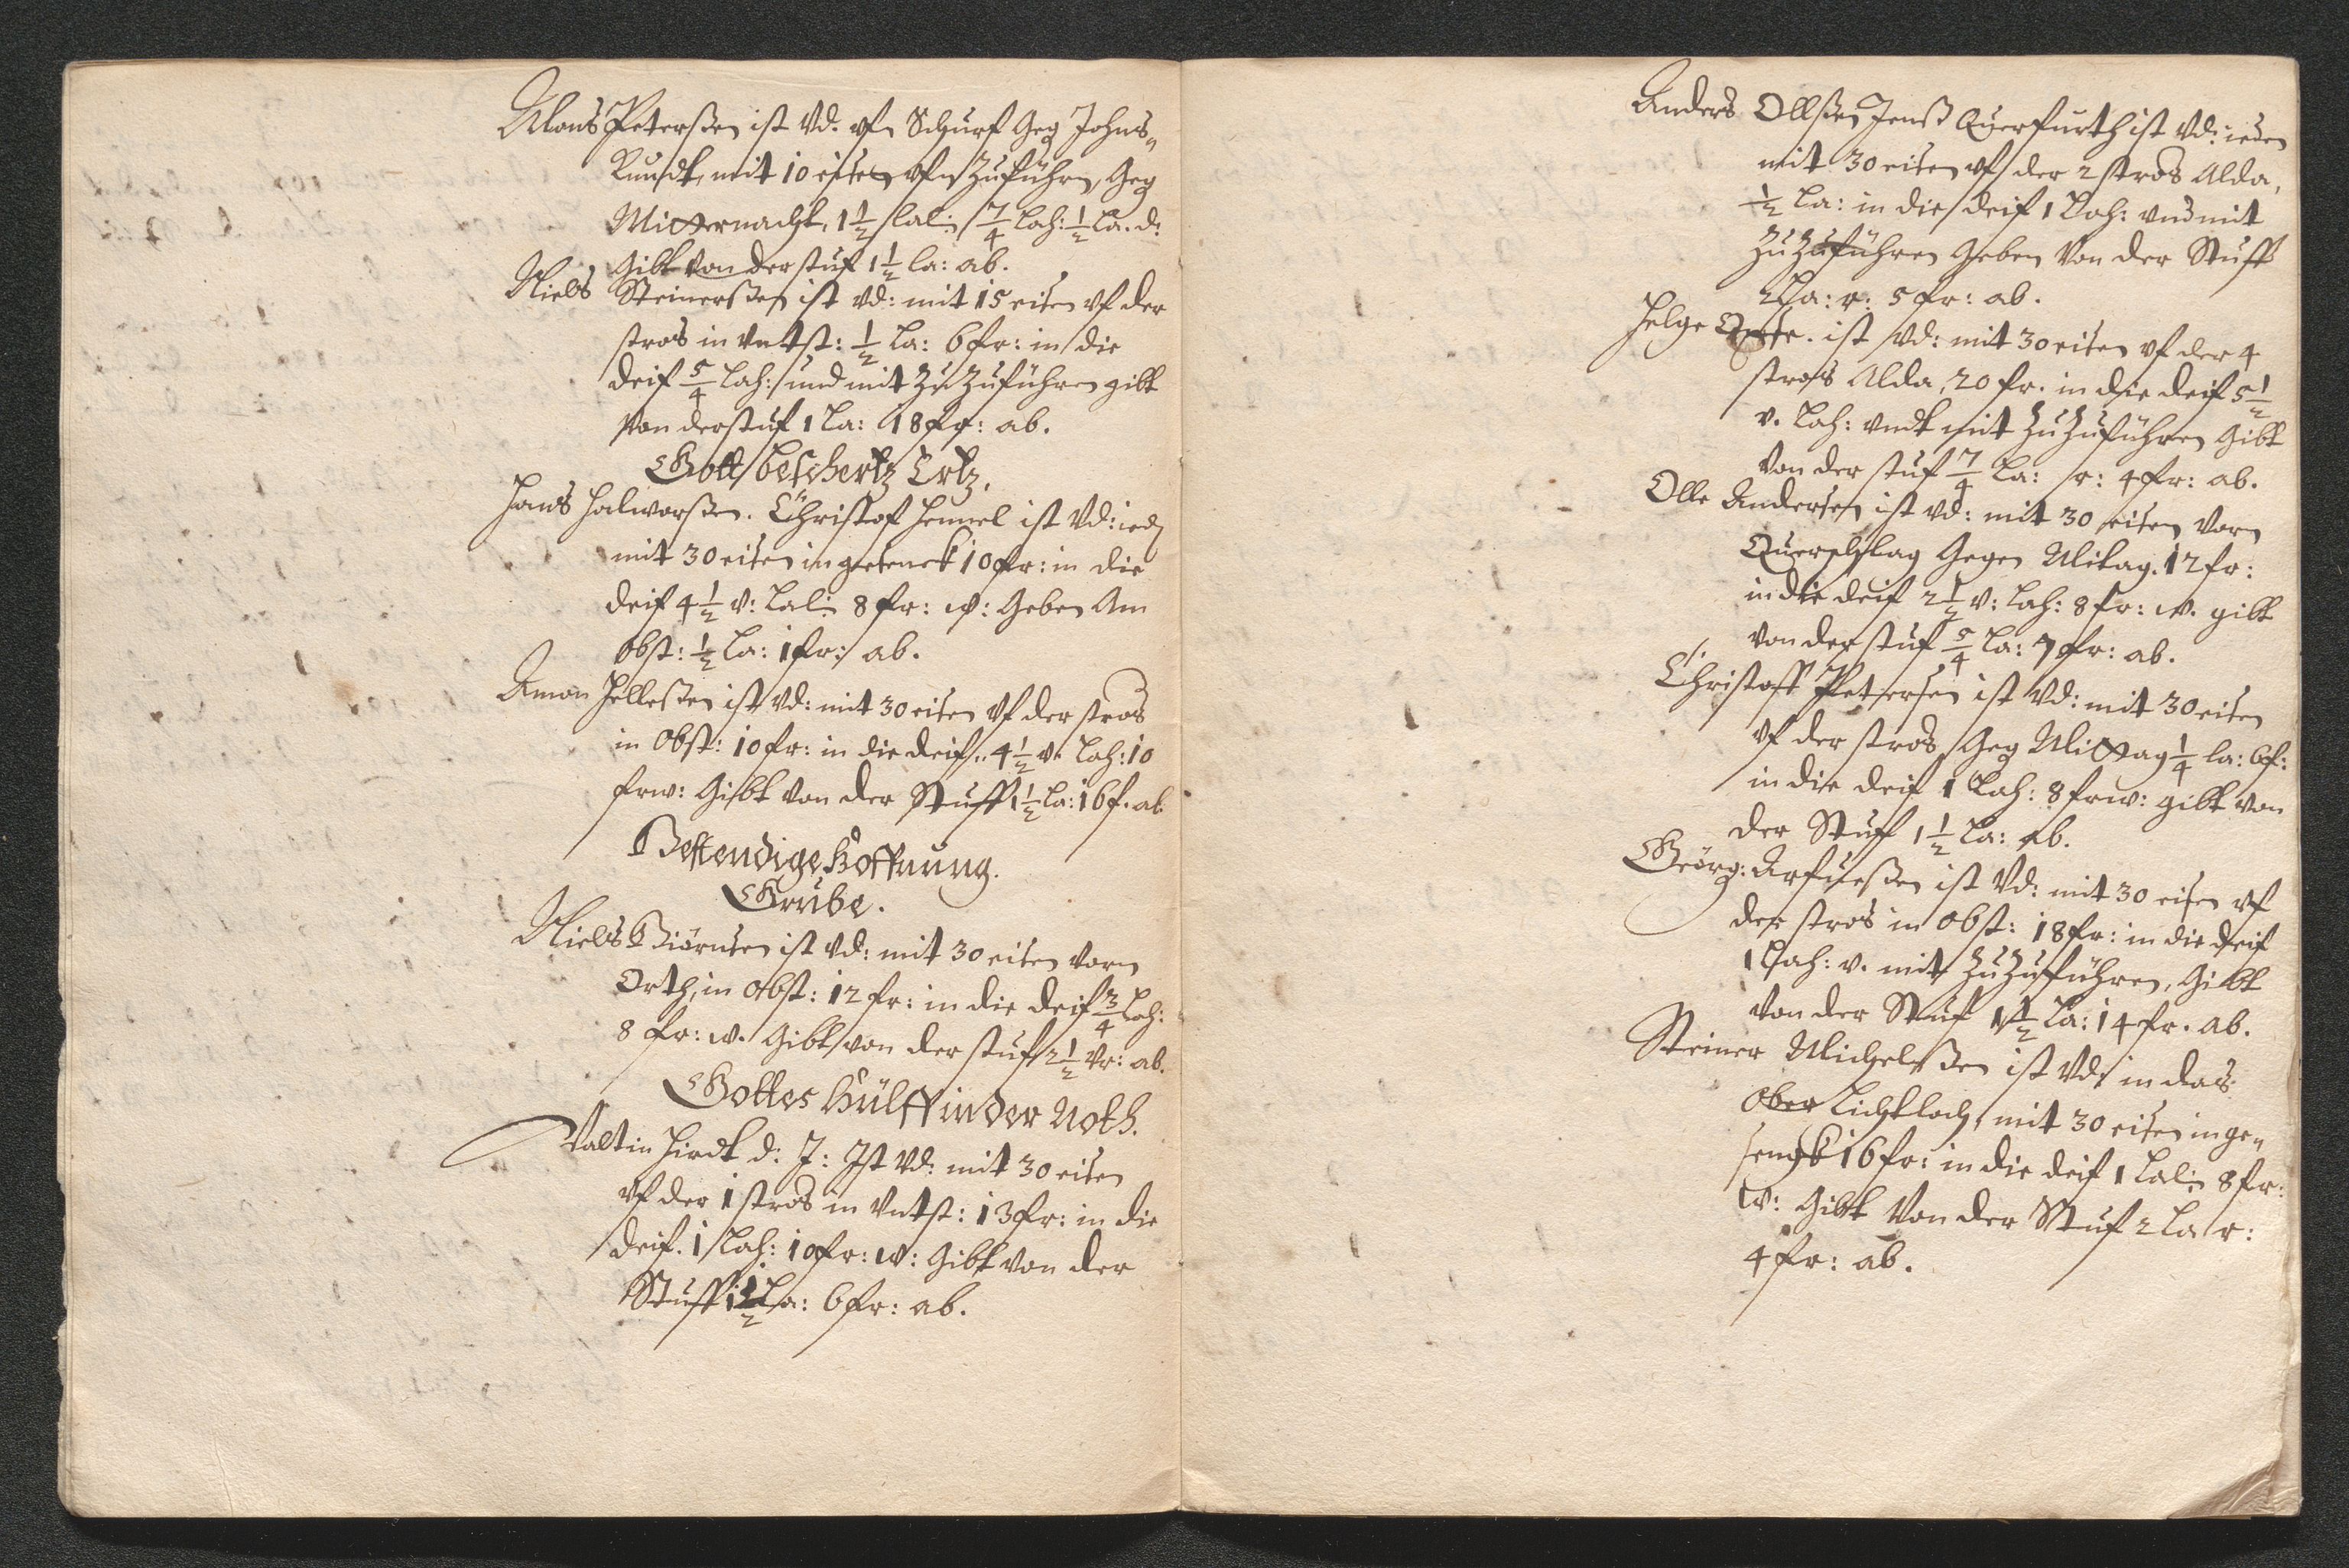 Mons Peterßen ist Vd. vfn Schurf Geg Johns„
Kundt, mit 10 eisen vfn Zuführn, Geg
Mitternacht, 1 1/2 lal: 7/4 lach: 1/2 La. d:
Gibt von der stuf 1 1/2 la: ab.
Niels Steinerßen ist vd: mit 15 eisen vf der
stros in vntst: 1/2 La: 6 fr: in die
deif 5/4 lach: und mit Zu Zuführen gibt
von der stuf 1 La: 18 fr: ab.
Gott beschertz Ertz.
Hans Halworßen. Christof Hennel ist Vd: ied
mit 30 eisen in gesenck 10 fr: in die
deif 4 1/2 v: Lal: 8 fr: w: Geben Am
obst: 1/2 La: 1 fr: ab.
Amon Helleßen ist vd: mit 30 eisen vf der stros
in Obst: 10 fr: in die deif: 4 1/2 v. Lach: 10
frw: Gibt von der Stuff 1 1/2 La: 16 f. ab
Bestendige Hoffnung.
Grube.
Niels Biörnsen ist vd: mit 30 eisen vorn
Orth, in obst: 12 fr: in die deif 3/4 Lach:
8 fr: w. Gibt von der stuf 2 1/2 vr: ab.
Gottes Hülff in der Noth.
Valtin Hirdt d: J: Ist Vd: mit 30 eisen
vf der 1 stros in vntst: 13 fr: in die
deif. 1 Lach: 10 fr: w: Gibt von der
Stuff La: 6 fr: ab.
Anders Ollßen Jenß Querfurth ist vd: ieden
mit 30 eisen vf der 2 stros Alda,
1/2 La: in die deif 1 Lach: vnd mit
Zu Zuführen Geben von der Stuff
2 La: r: 5 fr: ab.
Helge ist vd: mit 30 eisen vf der 4
stros Alda, 20 fr. in die deif 5 1/2
v. Lach: vndt mit Zu Zuführen Gibt
von der stuf 7/4 La: r: 4 fr: ab.
Olle Andersen ist vd: mit 30 eisen vorn
Querschlag Gegen Mitag. 12 fr:
in die deif 2 1/2 v: Lach: 8 fr: w. gibt
von der stuf 5/4 La: 7 fr: ab.
Christoff Petersen ist Vd: mit 30 eisen
vf der stros Geg Mittag 1/4 la: 6 f:
in die deif 1 Lach: 8 frw: gibt von
der Stuf 1 1/2 La: ab.
Geörg: Arfueßen ist Vd: mit 30 eisen vf
der stros in obst: 18 fr: in die deif
1 Lach: v. mit Zu Zuführen, Gibt
von der Stuf 1 1/2 La: 14 fr. ab.
Steiner Michelßen ist Vd: in das
Ober Lichtloch, mit 30 eisen in ge„
sengk 16 fr: in die deif 1 Lal: 8 fr:
w: Gibt von der Stuf 2 La r:
4 fr: ab.